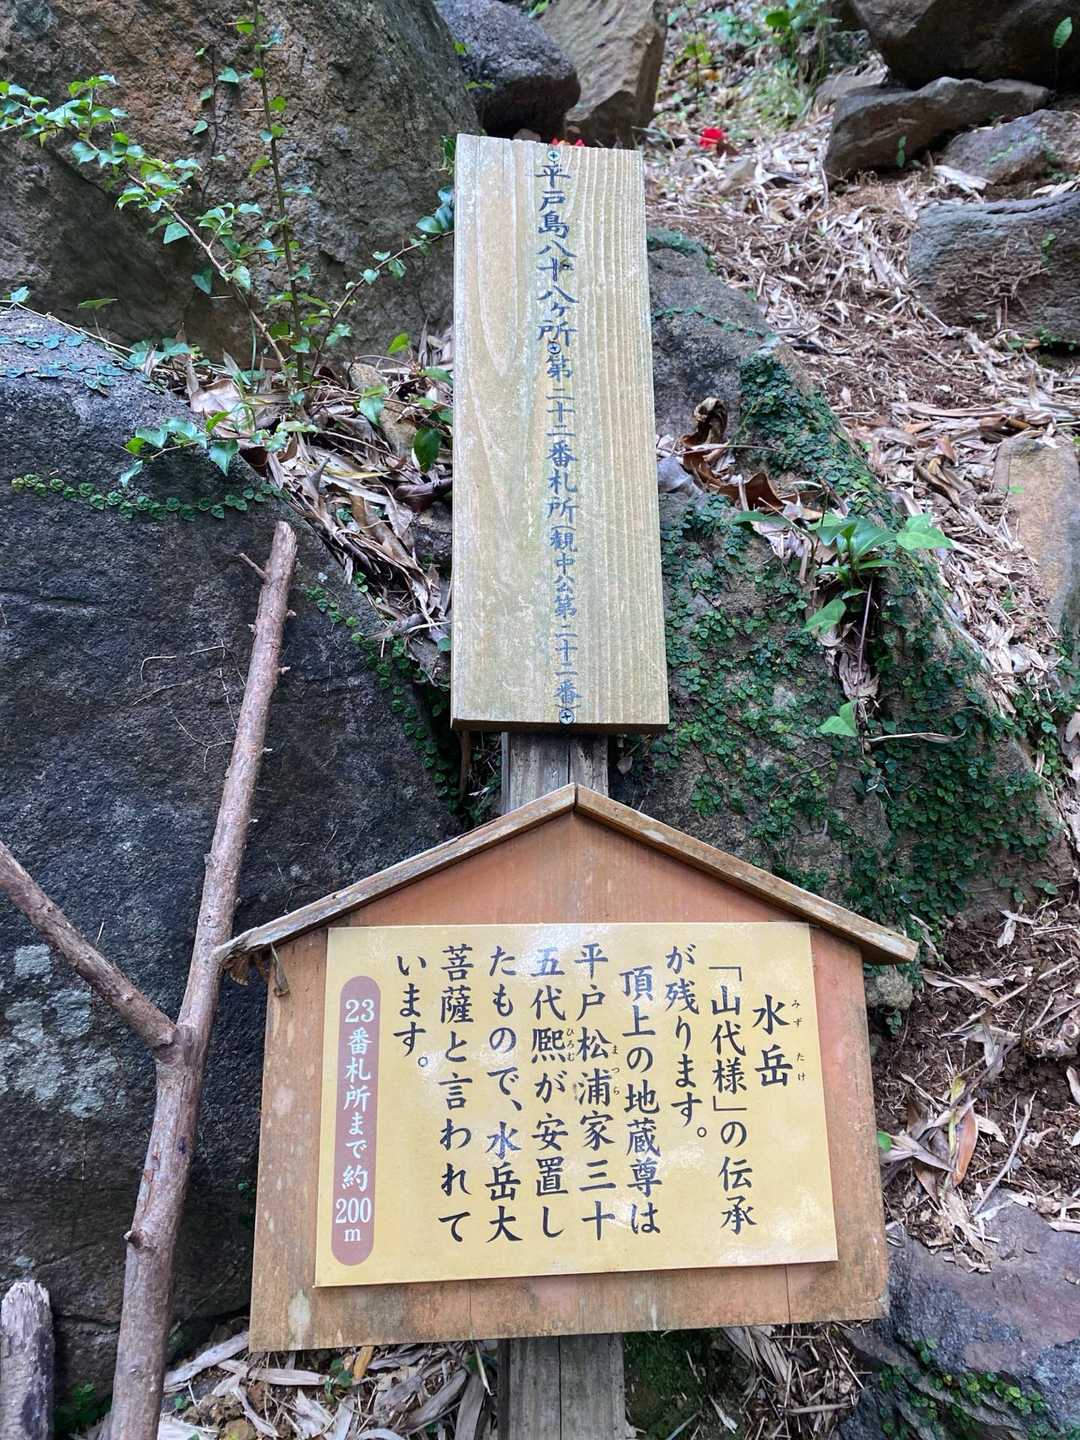 平戸島八十八ヶ所第二十二番札所(観中公第二十二番)
水岳
みずたけ
「山代様」の伝承
が残ります。
頂上の地蔵尊は
平戸松浦家三十
まつら
五代熈が安置し
ひろむ
たもので、水岳大
菩薩と言われて
います。
23番札所まで約200m